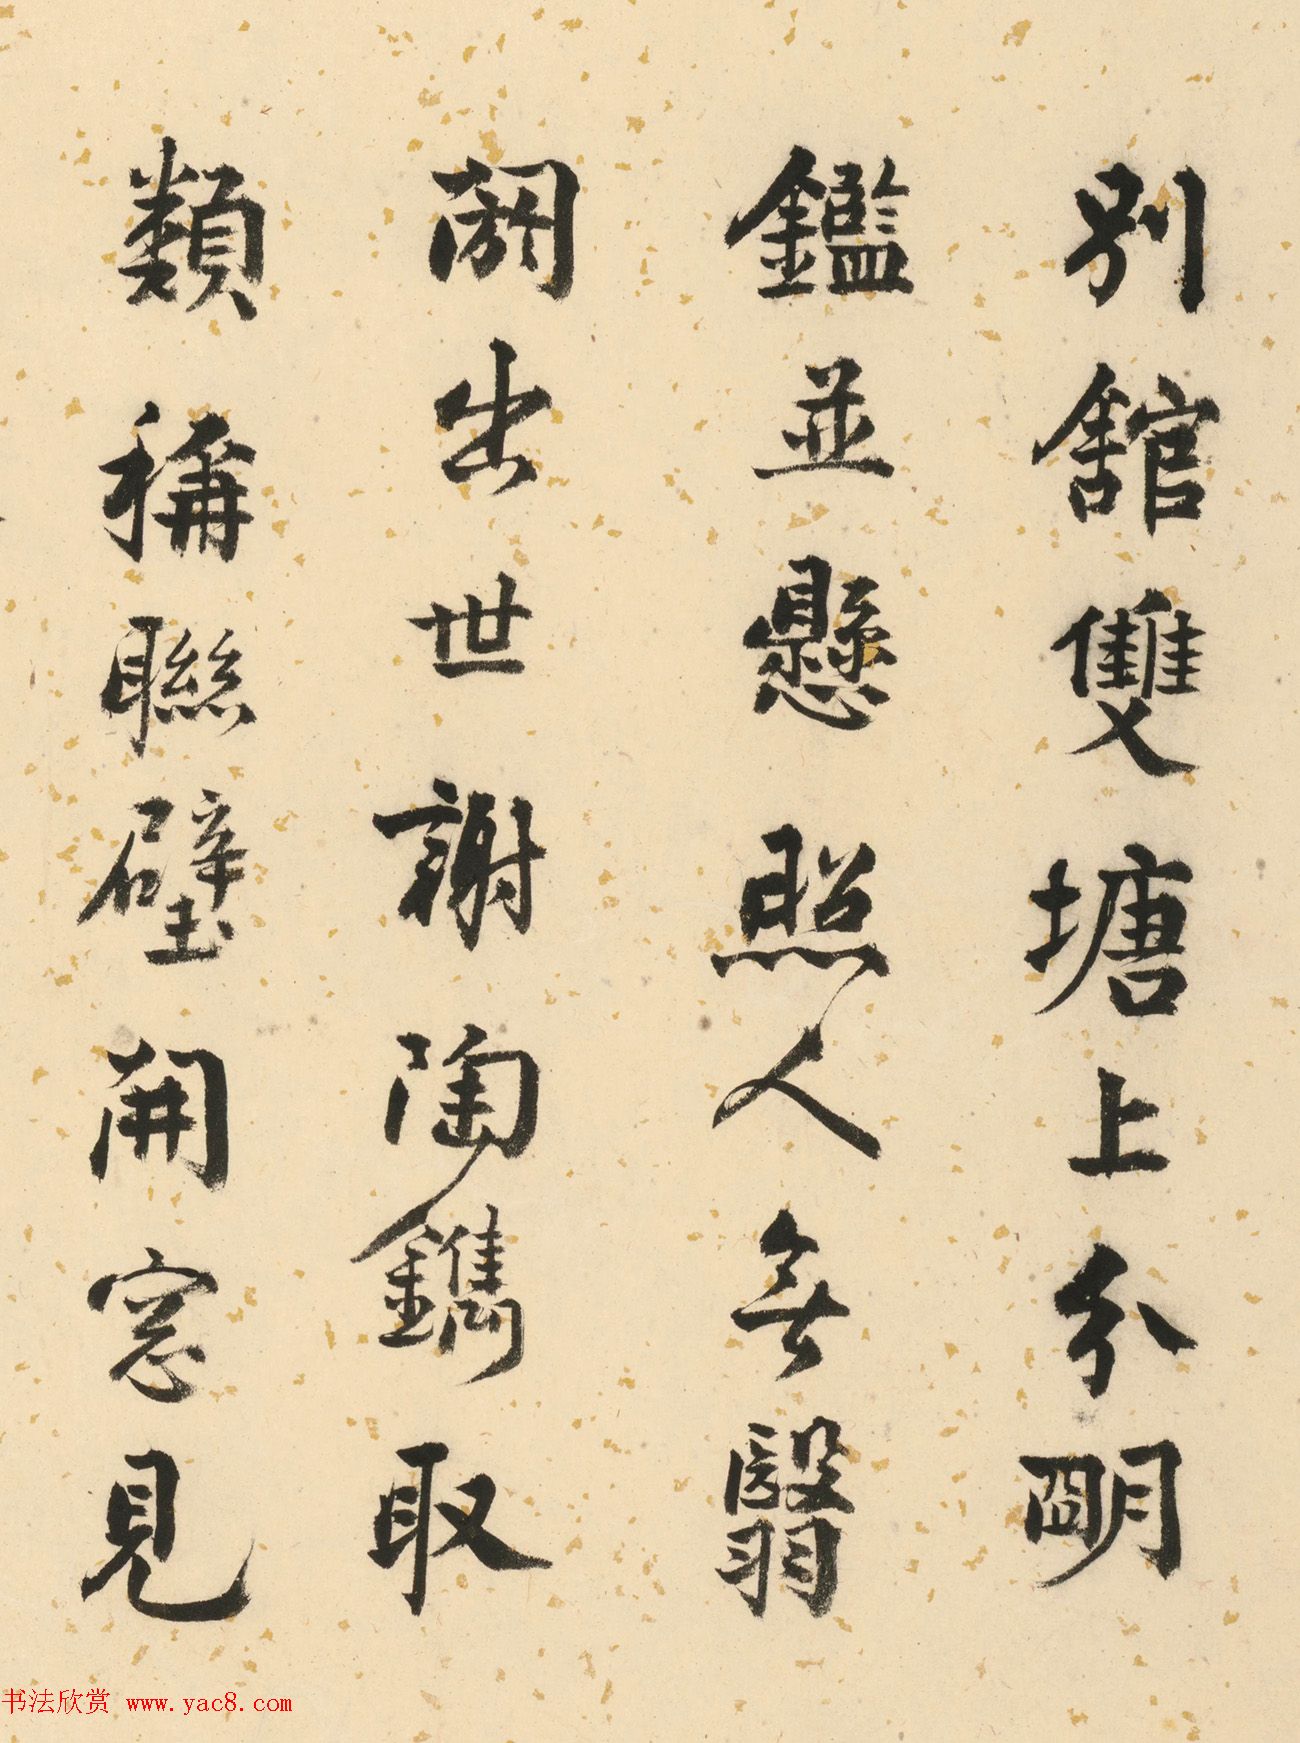 別舘雙塘上分朙
鑑並懸照人無翳
闕出世謝陶鐫取
類稱聯璧開窓見
书法欣赏 www.yac8.com